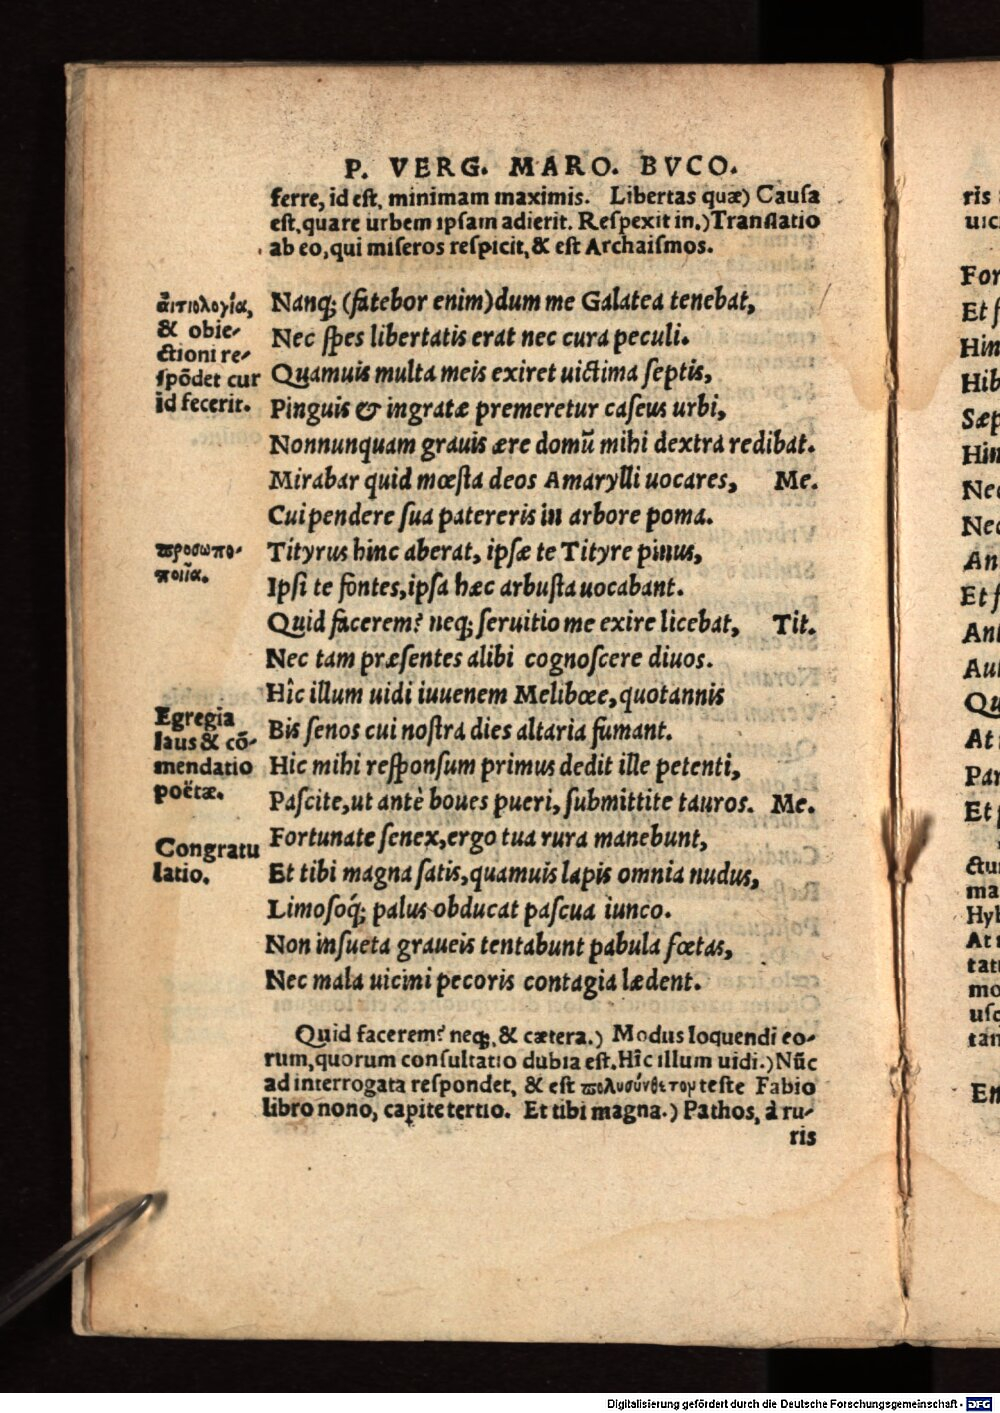 P. VERG. MARO. BVCO.
ferre, id est, minimam maximis. Libertas quæ) Causa
est, quare urbem ipsam adierit. Respexit in.) Translatio
ab eo, qui miseros respicit, & est Archaismos.
ἀιτιολογία,
& obie-
ctioni re-
spõdet cur
id fecerit.
Nanq; (fatebor enim) dum me Galatea tenebat,
Nec spes libertatis erat nec cura peculi.
Quamuis multa meis exiret uictima septis,
Pinguis & ingratæ premeretur caseus urbi,
Nonnunquam grauis ære domũ mihi dextra redibat.
Mirabar quid mœsta deos Amarylli uocares, Me.
Cui pendere sua patereris in arbore poma.
προσωπο-
ποιΐα.
Tityrus hinc aberat, ipsæ te Tityre pinus,
Ipsi te fontes, ipsa hæc arbusta uocabant.
Quid facerem? neq; seruitio me exire licebat, Tit.
Nec tam præsentes alibi cognoscere diuos.
Hîc illum uidi iuuenem Melibœe, quotannis
Egregia
laus & cõ-
mendatio
poëtæ.
Bis senos cui nostra dies altaria fumant.
Hic mihi responsum primus dedit ille petenti,
Pascite, ut antè boues pueri, submittite tauros. Me.
Congratu
latio.
Fortunate senex, ergo tua rura manebunt,
Et tibi magna satis, quamuis lapis omnia nudus,
Limosoq́; palus obducat pascua iunco.
Non insueta graueis tentabunt pabula fœtas,
Nec mala uicini pecoris contagia lædent.
Quid facerem? neq;, & cætera.) Modus loquendi eo-
rum, quorum consultatio dubia est. Hîc illum uidi.) Nũc
ad interrogata respondet, & est πολυσύνθετον teste Fabio
libro nono, capite tertio. Et tibi magna.) Pathos, à ru-
ris
ris
uic
For
Et s
Hin
Hib
Sæp
Hin
Nec
Nec
An
Et s
Ant
Aut
Qu
At
Par
Et
ctu
ma
Hyb
At
tat
mo
usc
tan
En
Digitalisierung gefördert durch die Deutsche Forschungsgemeinschaft - DFG